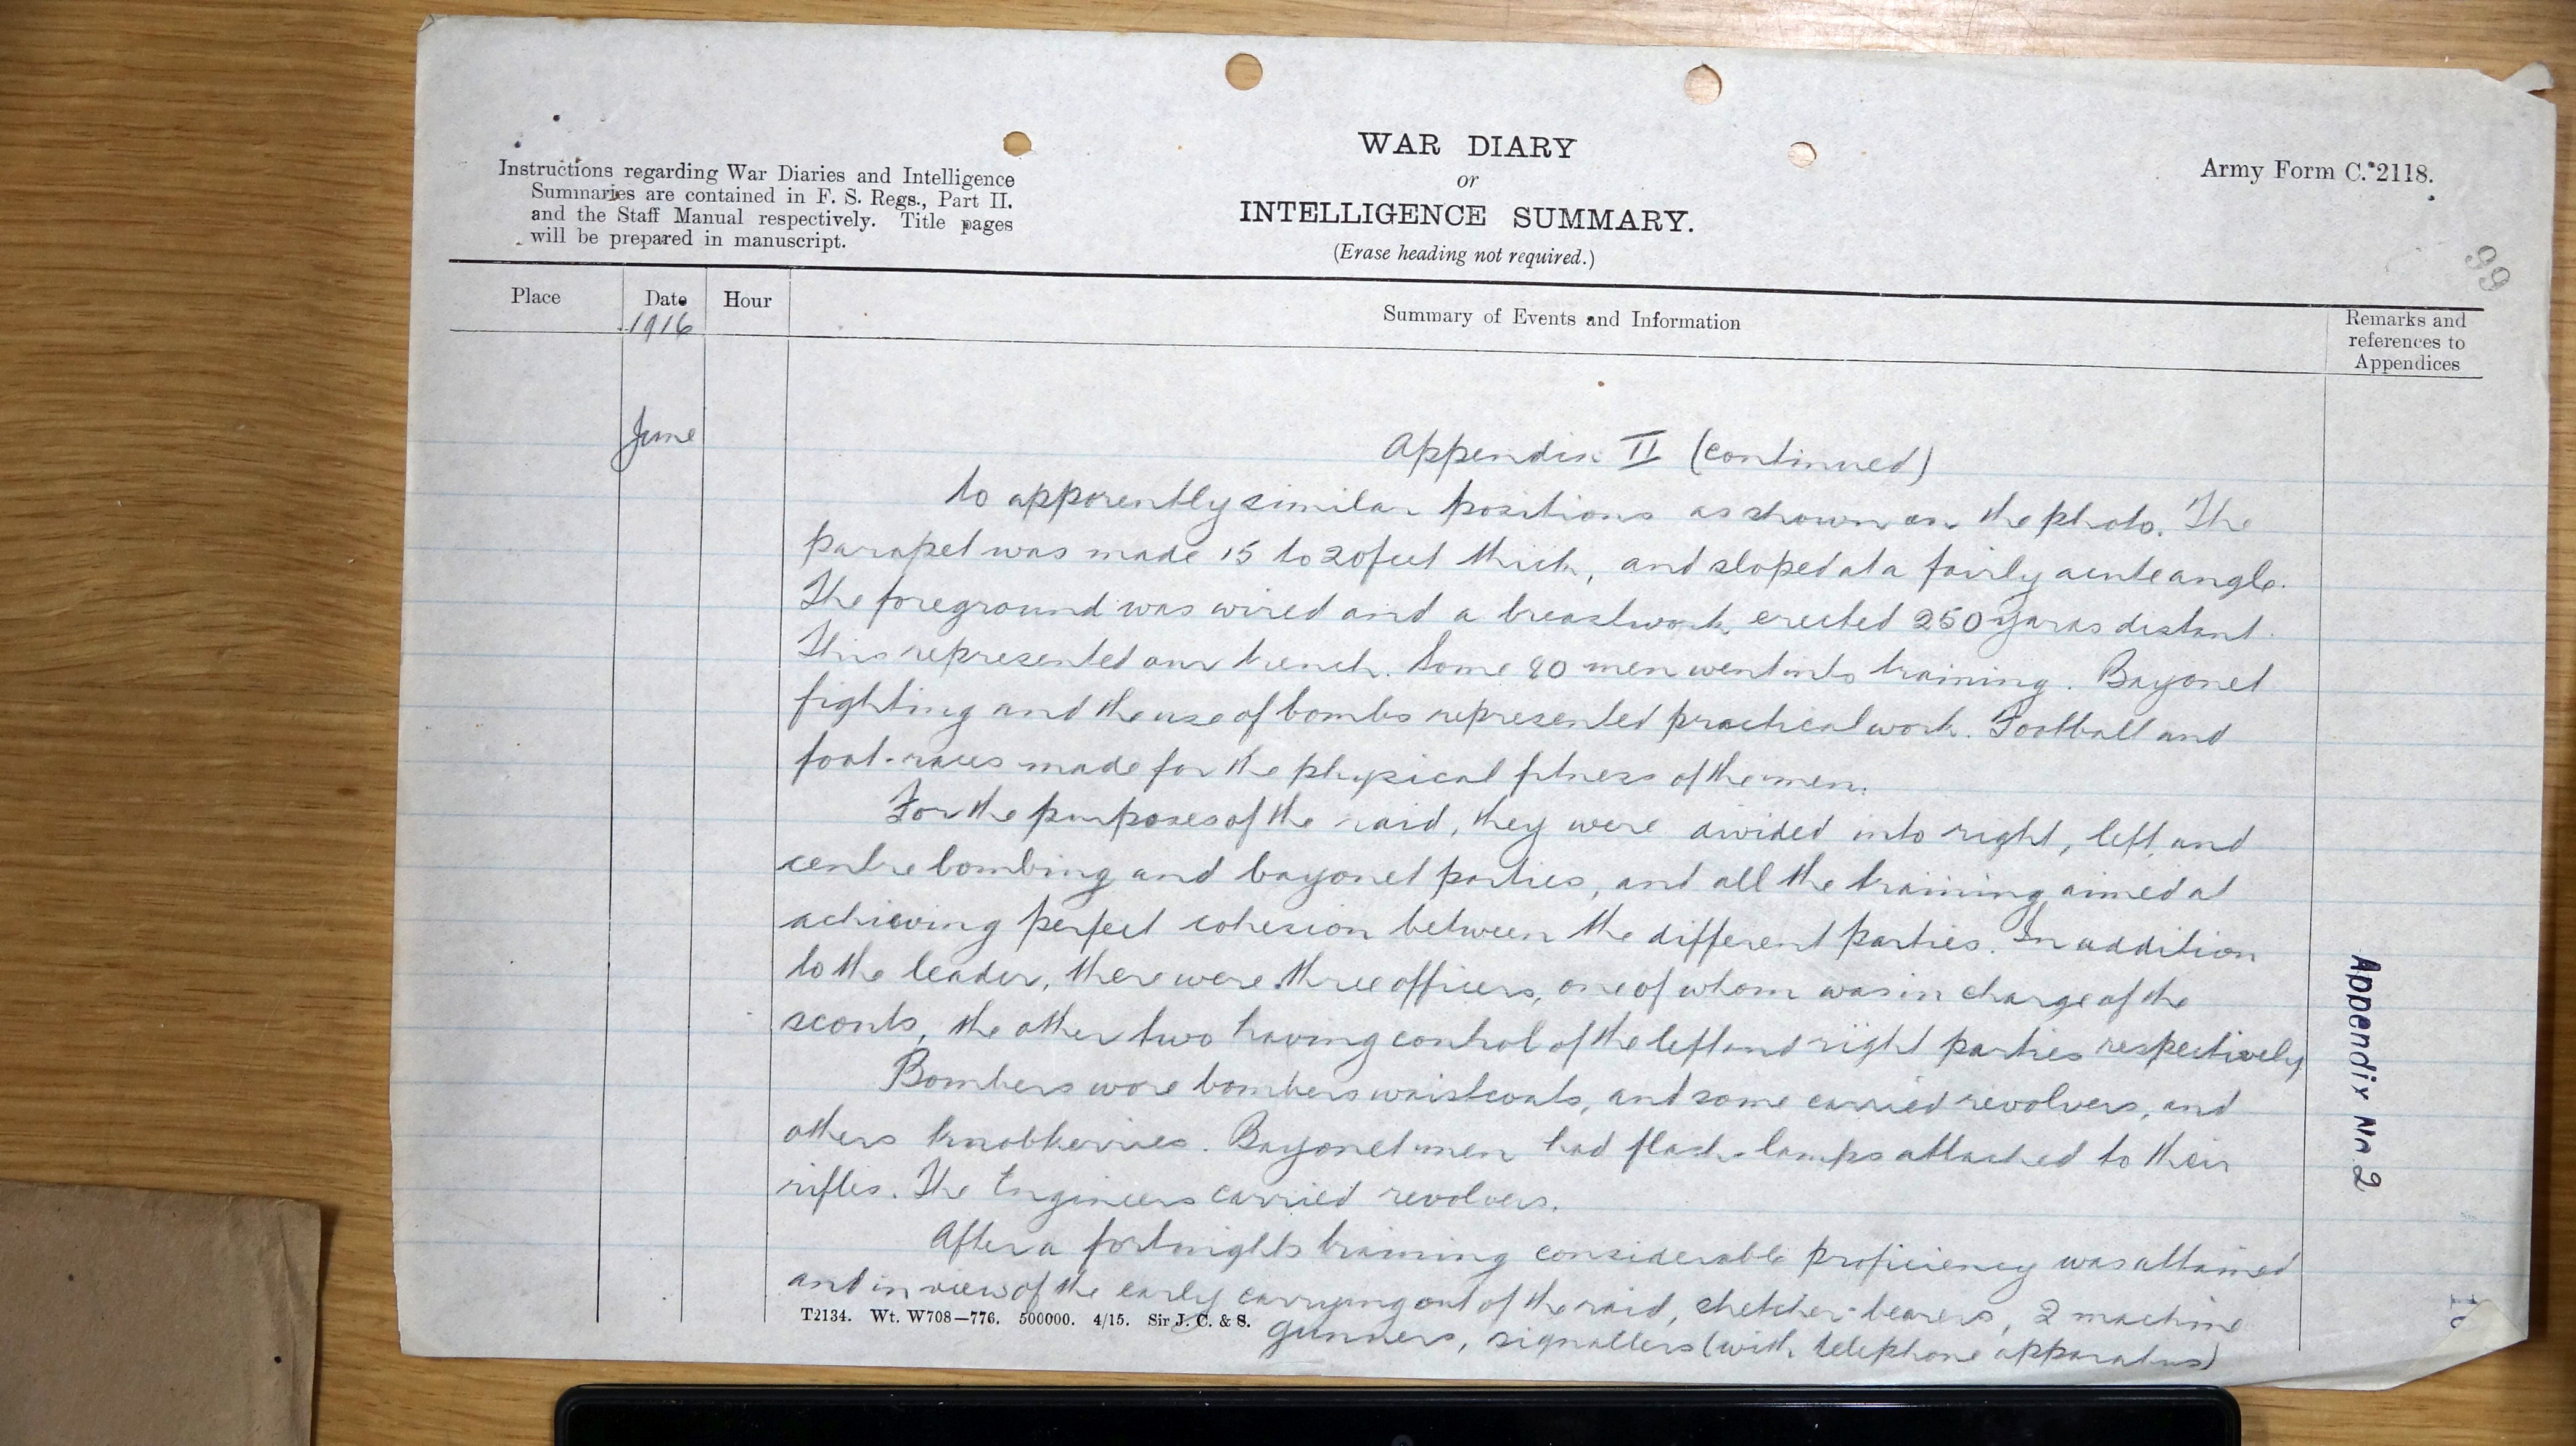 WAR DIARY
or
INTELLIGENCE SUMMARY.
(Erase heading not required.)
Instructions regarding War Diaries and Intelligence
Summaries are contained in F. S. Regs., Part II.
and the Staff Manual respectively. Title pages
will be prepared in manuscript.
Army Form C. 2118.
99
Place
Date
1916
Hour
Summary of Events and Information
Remarks and
references to
Appendices
June
Appendix II (continued)
to apparently similar positions as shown on the photo. The
parapet was made 15 to 20 feet thick, and sloped at a fairly acute angle.
The foreground was wired and a breastwork erected 250 yards distant.
This represented our trench. Some 80 men went into training. Bayonet
fighting and the use of bombs represented practical work. Football and
foot-races made for the physical fitness of the men.
For the purposes of the raid, they were divided into right, left and
centre bombing and bayonet parties, and all the training aimed at
achieving perfect cohesion between the different parties. In addition
to the leader, there were three officers, one of whom was in charge of the
scouts, the other two having control of the left and right parties respectively
Bombers wore bombers waistcoats, and some carried revolvers, and
others knobkerries. Bayonet men had flash-lamps attached to their
rifles. The Engineers carried revolvers.
After a fortnights training considerable proficiency was attained
and in view of the early carrying out of the raid, stretcher-bearers, 2 machine
gunners, signallers (with telephone apparatus)
Appendix No 2
T2134. Wt. W708—776. 500000. 4/15. Sir J. C. & S.